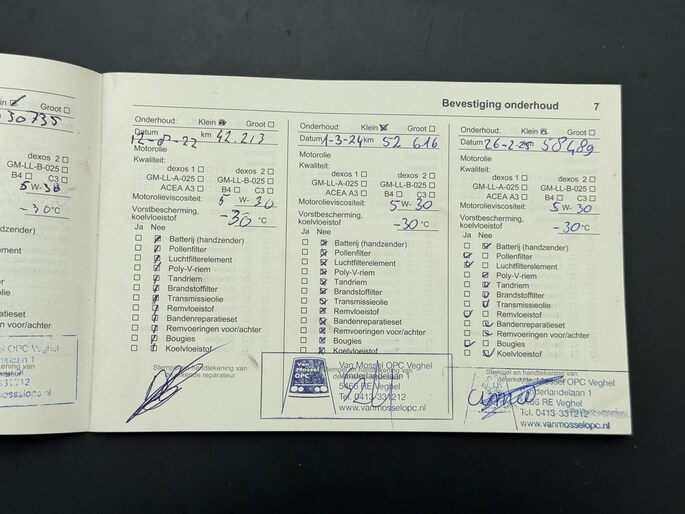 Bevestiging onderhoud 7
Klein Groot
30735
dexos 2
GM-LL-B-025
B4 C3
5 W-30
-30°C
Onderhoud: Klein Groot
Datum km 42.213
Motorolie
Kwaliteit:
dexos 1 dexos 2
GM-LL-A-025 GM-LL-B-025
ACEA A3 B4 C3
Motorolieviscositeit: 5 W- 30
Vorstbescherming,
koelvloeistof -30 °C
Ja Nee
Batterij (handzender)
Pollenfilter
Luchtfilterelement
Poly-V-riem
Tandriem
Brandstoffilter
Transmissieolie
Remvloeistof
Bandenreparatieset
Remvoeringen voor/achter
Bougies
Koelvloeistof
Stempel en handtekening van
de erkende reparateur
Onderhoud: Klein Groot
Datum 1-3-24 km 52 616
Motorolie
Kwaliteit:
dexos 1 dexos 2
GM-LL-A-025 GM-LL-B-025
ACEA A3 B4 C3
Motorolieviscositeit: 5 W- 30
Vorstbescherming,
koelvloeistof -30 °C
Ja Nee
Batterij (handzender)
Pollenfilter
Luchtfilterelement
Poly-V-riem
Tandriem
Brandstoffilter
Transmissieolie
Remvloeistof
Bandenreparatieset
Remvoeringen voor/achter
Bougies
Koelvloeistof
Van
Mossel
OPC
Van Mossel OPC Veghel
5466 RE Veghel
Tel. 0413-331212
www.vanmosselopc.nl
Onderhoud: Klein Groot
Datum 26-2-25 km 58489
Motorolie
Kwaliteit:
dexos 1 dexos 2
GM-LL-A-025 GM-LL-B-025
ACEA A3 B4 C3
Motorolieviscositeit: 5 W- 30
Vorstbescherming,
koelvloeistof -30 °C
Ja Nee
Batterij (handzender)
Pollenfilter
Luchtfilterelement
Poly-V-riem
Tandriem
Brandstoffilter
Transmissieolie
Remvloeistof
Bandenreparatieset
Remvoeringen voor/achter
Bougies
Koelvloeistof
Stempel en handtekening van
OPC Veghel
RE Veghel
Tel. 0413-331212
www.vanmosselopc.nl